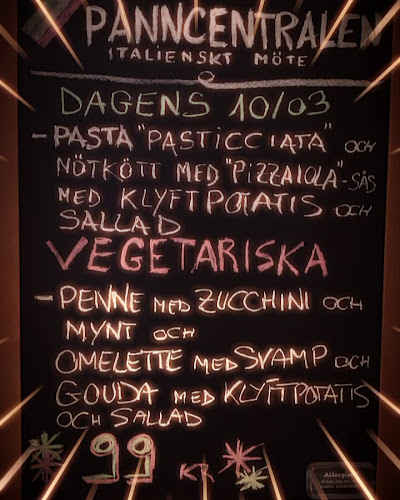 PANNCENTRALEN
ITALIENSKT MÖTE
DAGENS 10/03
- PASTA "PASTICCIATA" OCH
NÖTKÖTT MED "PIZZAIOLA"-SÅS
MED KLYFTPOTATIS OCH
SALLAD
VEGETARISKA
- PENNE MED ZUCCHINI OCH
MYNT OCH
OMELETTE MED SVAMP OCH
GOUDA MED KLYFTPOTATIS
OCH SALLAD
99 KR